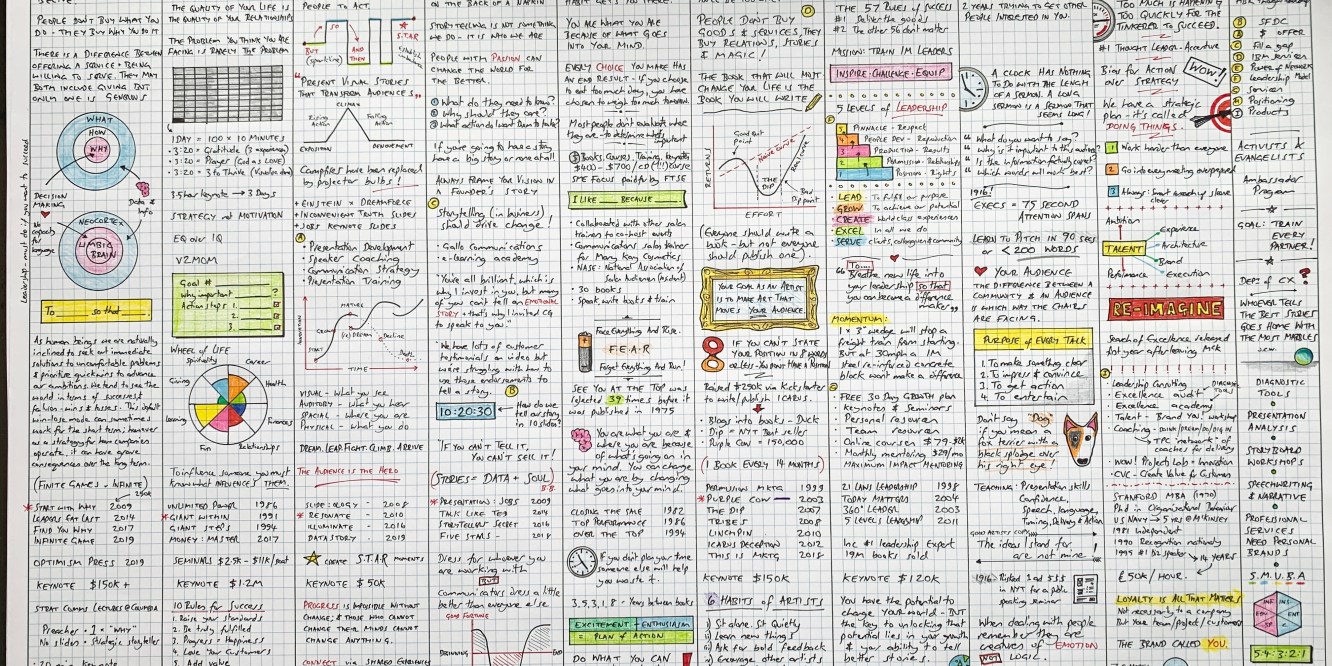 PEOPLE DON'T BUY WHAT YOU
DO - THEY BUY WHY YOU DO IT
THERE IS A DIFFERENCE BETWEEN
OFFERING A SERVICE + BEING
WILLING TO SERVE. THEY MAY
BOTH INCLUDE GIVING BUT
ONLY ONE IS GENEROUS
WHAT
HOW
WHY
DECISION
MAKING
Data &
Info
No capacity
for
language
NEOCORTEX
LIMBIC
BRAIN
Leadership - must do if you want to succeed
To so that
As human beings we are naturally
inclined to seek out immediate
solutions to uncomfortable problems
& prioritize quick wins to advance
our ambitions. We tend to see the
world in terms of success &
failure - wins & losses. This default
win-lose mode can sometimes
work for the short term; however
as a strategy for how companies
operate, it can have grave
consequences over the long term.
(FINITE GAMES - INFINITE)
START WITH WHY 2009
LEADERS EAT LAST 2014
FIND YOU WHY 2017
INFINITE GAME 2019
OPTIMISM PRESS 2019
KEYNOTE $150K +
STRAT COMMS LECTURES @ COLUMBIA
Preacher - 1 x "WHY"
No slides - Strategic storyteller
THE QUALITY OF YOUR LIFE IS
THE QUALITY OF YOUR RELATIONSHIPS
The Problem you think you are
facing is rarely the Problem
1 DAY = 100 x 10 MINUTES
- 3:20 - Gratitude (3 experiences)
- 3:20 - Prayer (God as LOVE)
- 3:20 - 3 to Thrive
3.5 hour keynote → 3 Days
STRATEGY not MOTIVATION
EQ over IQ
V2MOM
Goal #
why important
Action steps 1.
2.
3.
WHEEL OF LIFE
Spirituality
Career
Giving
Health
Learning
Finances
Fun
Relationships
To influence someone you must
know what INFLUENCES THEM.
UNLIMITED POWER 1986
GIANT WITHIN 1991
GIANT STEPS 1994
MONEY: MASTER 2017
SEMINARS $2.5K - $11K/seat
KEYNOTE $1.2M
10 Rules for Success
1. Raise your standards
2. Be truly fulfilled
3. Progress = Happiness
4. Love Your Customers
5. Add value
PEOPLE TO ACT.
SO
BUT
AND
THEN
S.T.A.R
"PRESENT VISUAL STORIES
THAT TRANSFORM AUDIENCES"
CLIMAX
Rising
Action
Falling
Action
EXPOSITION
DENOUEMENT
Campfires have been replaced
by projector bulbs!
+ EINSTEIN x DREAMFORCE
+ INCONVENIENT TRUTH SLIDES
+ JOBS KEYNOTE SLIDES
• Presentation Development
• Speaker Coaching
• Communication Strategy
• Presentation Training
MATURE
Decline
START
TIME
VISUAL - What you see
AUDITORY - what you hear
SPACIAL - where you are
PHYSICAL - What you do
DREAM. LEAP. FIGHT. CLIMB. ARRIVE
THE AUDIENCE IS THE HERO
SLIDE:OLOGY - 2008
RESONATE - 2010
ILLUMINATE - 2016
DATASTORY - 2019
CREATE S.T.A.R MOMENTS
KEYNOTE $50K
PROGRESS IS IMPOSSIBLE WITHOUT
CHANGE; & THOSE WHO CANNOT
CHANGE THEIR MINDS CANNOT
CHANGE ANYTHING.
CONNECT via SHARED EXPERIENCES
ON THE BACK OF A NAPKIN
STORYTELLING IS NOT SOMETHING
WE DO - IT IS WHO WE ARE
PEOPLE WITH PASSION CAN
CHANGE THE WORLD FOR
THE BETTER.
① What do they need to know?
② Why should they care?
③ What action do I want them to take?
If you're going to have a story
have a big story or none at all
ALWAYS FRAME YOUR VISION IN
A FOUNDER'S STORY
Storytelling (in business)
should drive change!
- Gallo Communications
- e-learning academy
"You're all brilliant, which is
why I invest in you, but many
of you can't tell an EMOTIONAL
STORY & that's why I invited CG
to speak to you."
"We have lots of customer
testimonials on video but
were struggling with how to
use those endorsements to
tell a story.
10:20:30
How do we
tell our story
in 10 slides?
"IF YOU CAN'T TELL IT,
YOU CAN'T SELL IT!
(STORIES = DATA + SOUL)
B.B.
PRESENTATION: JOBS 2009
TALK LIKE TED 2014
STORYTELLERS SECRET 2016
FIVE STARS - 2018
Dress for whoever you
are working with
BUT
Communicators dress a little
better than everyone else
GOOD FORTUNE
BEGINNING
END
YOU ARE WHAT YOU ARE
BECAUSE OF WHAT GOES
INTO YOUR MIND.
EVERY CHOICE YOU MAKE HAS
AN END RESULT - if you choose
to eat too much today, you have
chosen to weigh too much tomorrow.
Most people don't evaluate where
they are - to determine what's
important
Books, Courses, Training, Keynotes
$400 - $700/CD(!!) Course
SME Focus paid for by FTSE
I LIKE BECAUSE
• Collaborated with other sales
trainers to co-host events
• Communications/sales trainer
for Mary Kay Cosmetics
• NASE: National Association of
Sales Audiences
• 30 books
• Speak, write books & train
Face Everything And Rise.
F.E.A.R
Forget Everything And Run!
SEE YOU AT THE TOP WAS
rejected 39 times before it
was published in 1975
You are what you are &
where you are because
of what's going on in
your mind. You can change
what you are by changing
what goes into your mind.
CLOSING THE SALE 1982
TOP PERFORMANCE 1986
OVER THE TOP 1994
If you don't plan your time
someone else will help
you waste it.
3, 5, 3, 1, 8 - Years between books
EXCITEMENT + ENTHUSIASM
= PLAN OF ACTION
DO WHAT YOU CAN
PEOPLE DON'T BUY
GOODS & SERVICES, THEY
BUY RELATIONS, STORIES
& MAGIC!
THE BOOK THAT WILL MOST
CHANGE YOUR LIFE IS THE
BOOK YOU WRITE
RETURNS
Good out
point
THE
DIP
Bad
Out
point
EFFORT
(Everyone should write a
book - but not everyone
should publish one).
YOUR GOAL AS AN ARTIST
IS TO MAKE ART THAT
MOVES YOUR AUDIENCE.
IF YOU CAN'T STATE
YOUR POSITION IN 8 WORDS
OR LESS - YOU DON'T HAVE A POSITION
Raised $290K via Kickstarter
to write/publish ICARUS.
• Blogs into books - Duck
• Dip = NYT Best seller
• Purple Cow = 150,000
(1 BOOK EVERY 14 MONTHS)
PERMISSION MKTG 1999
PURPLE COW 2003
THE DIP 2007
TRIBES 2008
LINCHPIN 2010
ICARUS DECEPTION 2012
THIS IS MKTG 2018
KEYNOTE $150K
6 HABITS OF ARTISTS
i) Sit alone. Sit Quietly
ii) Learn new things
iii) Ask for bold feedback
iv) Encourage other artists
THE 57 RULES OF SUCCESS
#1 Deliver the goods
#2 The other 56 don't matter
MISSION: TRAIN 1M LEADERS
INSPIRE · CHALLENGE · EQUIP
5 LEVELS OF LEADERSHIP
5 PINNACLE - Respect
4 PEOPLE DEV - Reproduction
3 PRODUCTION - Results
2 PERMISSION - Relationships
1 POSITION - Rights
• LEAD To fulfil our purpose
• GROW To achieve our potential
• CREATE World class experiences
• EXCEL In all we do
• SERVE clients, colleagues & community
To....
"Breathe new life into
your leadership so that
you can become a difference
maker"
MOMENTUM:
1 x 3" wedge will stop a
freight train from starting.
BUT at 30mph a 1M
steel re-inforced concrete
block wont make a difference
• FREE 30 DAY GROWTH plan
• Keynotes & Seminars
• Personal resources
• Team resources
• Online courses
• Monthly mentoring $29/mo
• MAXIMUM IMPACT MENTORING
21 LAWS LEADERSHIP 1998
TODAY MATTERS 2004
360° LEADER 2003
5 LEVELS LEADERSHIP 2011
Inc #1 leadership Expert
19M books sold
KEYNOTE $120K
You have the potential to
change your world - BUT
the key to unlocking that
potential lies in your growth
& your ability to tell
better stories.
2 YEARS TRYING TO GET OTHER
PEOPLE INTERESTED IN YOU.
A CLOCK HAS NOTHING
TO DO WITH THE LENGTH
OF A SERMON. A LONG
SERMON IS A SERMON THAT
SEEMS LONG!
"What do you want to say?
"Why is it important to this audience?
"Is the information factually correct?
"Which words will work best?
1916!
EXECS = 75 SECOND
ATTENTION SPANS
LEARN TO PITCH IN 90 SECS
OR < 200 WORDS
YOUR AUDIENCE
THE DIFFERENCE BETWEEN A
COMMUNITY & AN AUDIENCE
IS WHICH WAY THE CHAIRS
ARE FACING.
PURPOSE OF EVERY TALK
1. To make something clear
2. To impress & convince
3. To get action
4. To entertain
Don't say "Dog"
if you mean a
fox terrier with a
black splodge over
his right eye!
TEACHING: Presentation skills
Confidence,
Speech, language,
Timing, Delivery & Action
GOOD ARTISTS COPY
The ideas I stand for
are not mine
1916 - Picked 1 ad $55
in NYT for a public
speaking seminar
When dealing with people
remember they are
creatures of EMOTION
NOT LOGIC.
TOO MUCH IS HAPPENING
TOO QUICKLY FOR THE
TINKERER TO SUCCEED.
#1 THOUGHT LEADER - Accenture
Bias for ACTION
STRATEGY
WOW!
We have a strategic
plan - it's called
DOING THINGS.
1 Work harder than everyone
2 Go into every meeting overprepared
3
Ambition
Experience
TALENT
Architecture
Brand
Performance
Execution
RE-IMAGINE
Search of Excellence released
first year after leaving McK
• Leadership Consulting
• Excellence audit
• Excellence academy
• Talent - Brand You! workshop
• Coaching
TPC "network" of
coaches for delivery
• WOW! Projects Lab - Innovation
• CVC - Create Value for Customers
STANFORD MBA (1970)
PhD in Organizational Behaviour
US NAVY → 5 yrs @ McKINSEY
1981 Independent
1990 Recognition nationally
1995 #1 BIZ speaker
14 YEARS
£50K/HOUR.
LOYALTY IS ALL THAT MATTERS
Not necessarily to a company
But Your team/project/customers
THE BRAND CALLED YOU.
SFDC
$ OFFER
Fill a gap
Power of Network
Leadership Model
Services
Positioning
Products
ACTIVISTS &
EVANGELISTS
Ambassador
Program
GOAL: TRAIN
EVERY
PARTNER!
DEPT OF CX?
WHOEVER TELLS
THE BEST STORIES
GOES HOME WITH
THE MOST MARBLES
DIAGNOSTIC
TOOLS
PRESENTATION
ANALYSIS
STORYBOARD
WORKSHOPS
SPEECHWRITING
& NARRATIVE
PROFESSIONAL
SERVICES
NEED PERSONAL
BRANDS
S.M.U.B.A
5:4:3:2:1